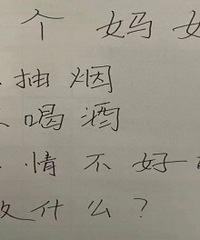 个 妈
抽 烟
喝 酒
情 不 好
什 么 ?